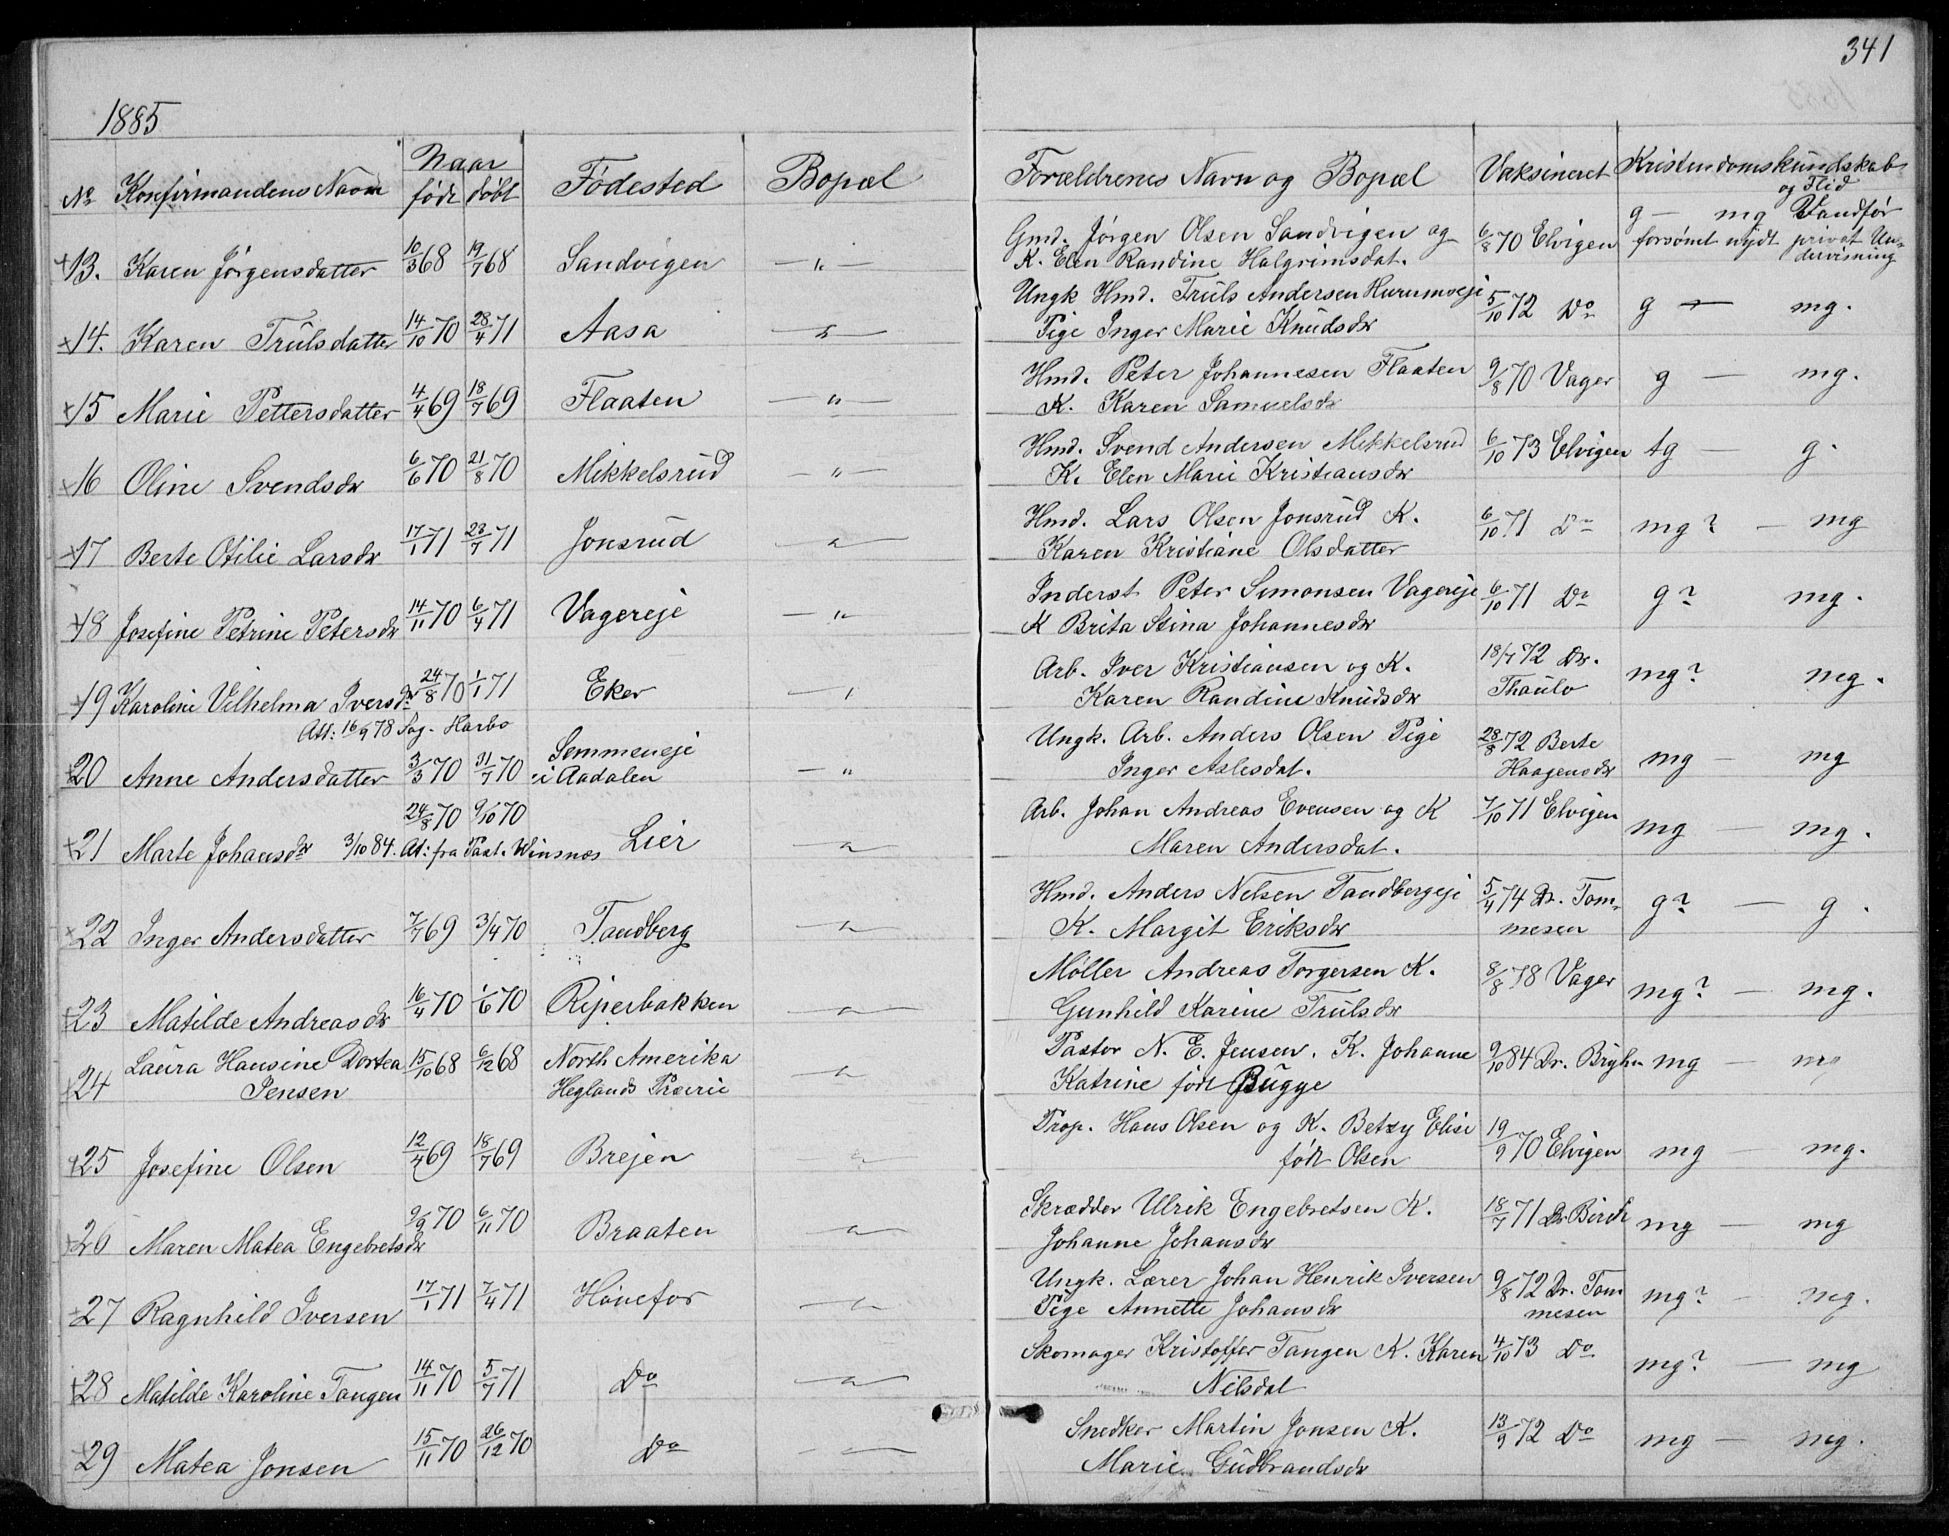 341
1885
No Konfirmandens Navn Naar født døbt Fødested Bopæl Forældrenes Navn og Bopæl Vaksineret Kristendomskundskab og Flid
13. Karen Jørgensdatter 10/3 68 19/7 68 Sandvigen — " — Gmd. Jørgen Olsen Sandvigen og 6/8 70 Elvigen g — mg Vandfør
K. Elen Randine Halgrimsdat. forsømt nydt privat Undervisning
14. Karen Trulsdatter 14/10 70 28/4 71 Aasa — " — Ungk Hmd. Truls Andersen Hurumseje 5/10 72 Do g — mg.
Pige Inger Marie Knudsdr
15 Marie Pettersdatter 4/4 69 18/7 69 Flaaten — " — Hmd. Peter Johannesen Flaaten 9/8 70 Vager g — mg.
K. Karen Samuelsdr
16 Oline Svendsdr 6/6 70 21/8 70 Mikkelsrud — " — Hmd. Svend Andersen Mikkelsrud 6/10 73 Elvigen tg — g.
K. Elen Marie Kristiansdr
17 Berte Otilie Larsdr 17/1 71 23/7 71 Jonsrud — " — Hmd. Lars Olsen Jonsrud K. 6/10 71 Do mg? — mg
Karen Kristiane Olsdatter
18 Josefine Petrine Petersdr 14/11 70 6/4 71 Vagereje — " Inderst Peter Simonsen Vagereje 6/10 71 Do g? mg.
K Brita Stina Johannesdr
19 Karoline Vilhelma Iversdr 24/8 70 1/1 71 Eker — " Arb. Iver Kristiansen og K. 18/7 72 Dr. Thaulo mg? mg.
Att: 16/9 78 Sog. Harbo Karen Randine Knudsdr
20 Anne Andersdatter 3/3 70 31/7 70 Semmeneje i Aadalen — " Ungk. Arb. Anders Olsen Pige 28/8 72 Berte Haagensdr mg — mg
Inger Aslesdat.
21 Marte Johansdr 24/8 70 9/10 70 Lier — " — Arb. Johan Andreas Evensen og K 7/10 71 Elvigen mg — mg.
3/10 84. At: fra Past. Winsnes Maren Andersdat.
22 Inger Andersdatter 7/7 69 3/4 70 Tandberg — " — Hmd. Anders Nelsen Tandbergeje 5/4 74 Dr. Tommesen g? — g.
K. Margit Eriksdr
23 Matilde Andreasdr 16/4 70 1/6 70 Riperbakken — " — Møller Andreas Torgersen K. 8/8 78 Vager mg? — mg.
Gunhild Karine Trulsdr
24 Laura Hansine Dortea Jensen 15/10 68 6/12 68 North Amerika Heglands Prærie — " — Pastor N. E. Jensen. K. Johanne 9/10 84 Dr. Bryhn mg — mg
Katrine født Bugge
25 Josefine Olsen 12/4 69 18/7 69 Brejen — " — Prop. Hans Olsen og K. Betzy Elise 19/9 70 Elvigen mg — mg.
født Olsen
26 Maren Matea Engebretsdr 9/9 70 6/11 70 Braaten — " — Skrædder Ulrik Engebretsen K. 18/7 71 Dr Birch mg — mg
Johanne Johansdr
27 Ragnhild Iversen 17/1 71 7/4 71 Hønefos — " — Ungk. Lærer Johan Henrik Iversen 9/8 72 Dr. Tommesen mg? — mg.
Pige Annette Johansdr
28 Matilde Karoline Tangen 14/11 70 5/7 71 Do — " — Skomager Kristoffer Tangen K. Karen 4/10 73 Do mg? — mg
Nilsdat
29 Matea Jonsen 15/11 70 26/12 70 Do — " — Snedker Martin Jonsen K. 13/9 72 Do mg — mg.
Marie Gudbrandsdr